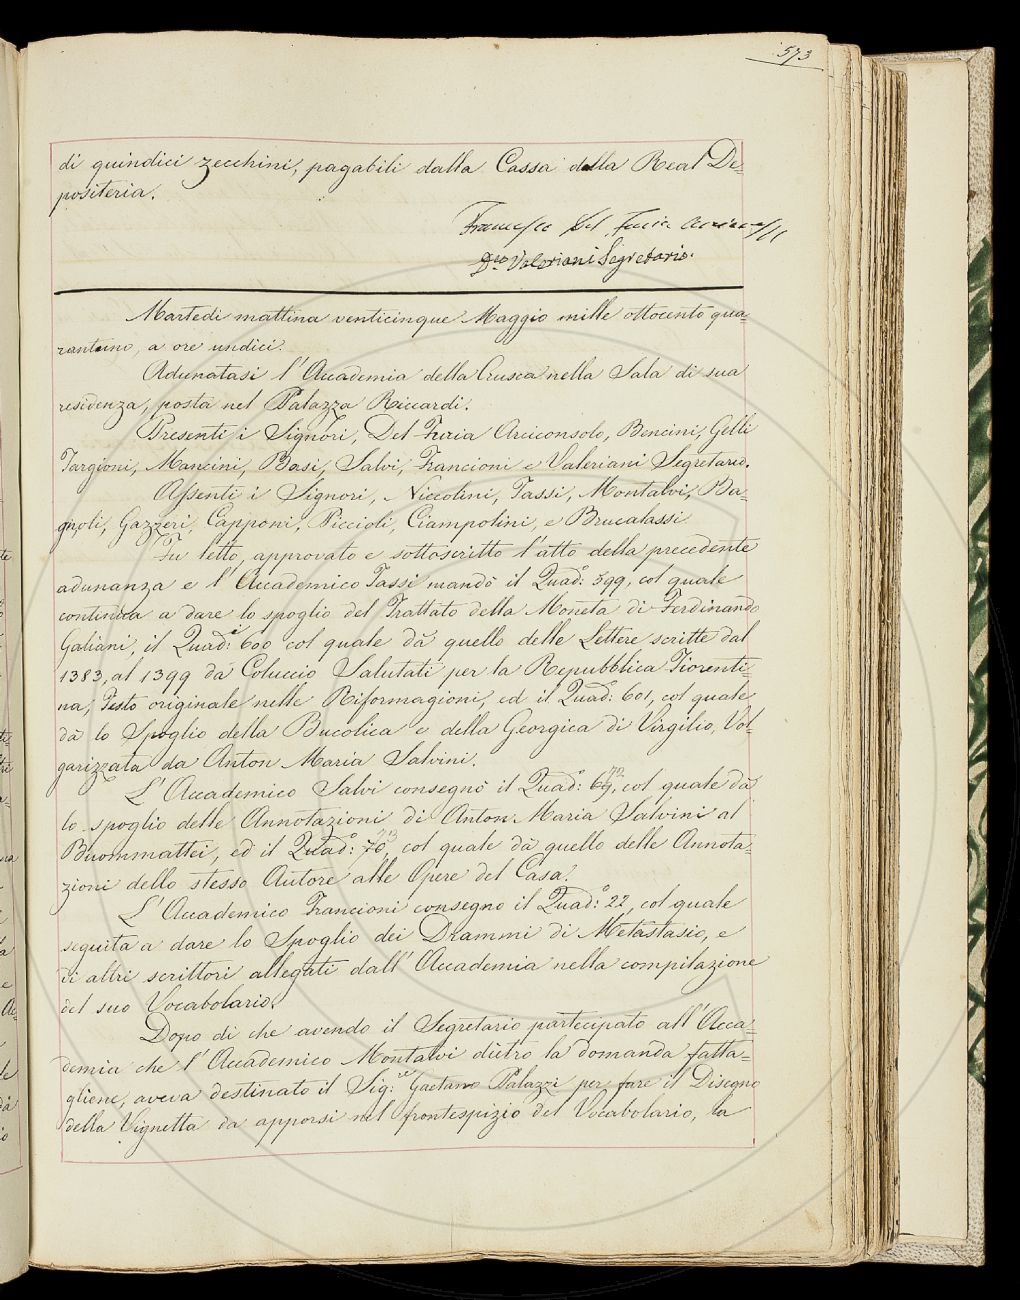 573
di quindici zecchini, pagabili dalla Cassa della Real De-
positeria.
Francesco Del Furia Arciconsolo
Do. Valeriani Segretario.
Martedi mattina venticinque Maggio mille ottocento qua-
rantuno, a ore undici.
Adunatasi l'Accademia della Crusca nella Sala di sua
residenza, posta nel Palazzo Riccardi.
Presenti i Signori, Del Furia Arciconsolo, Bencini, Gelli
Targioni, Mancini, Basi, Salvi, Francioni e Valeriani Segretario.
Assenti i Signori, Niccolini, Tassi, Montalvi, Ba-
gnoli, Gazzeri, Capponi, Piccioli, Ciampolini, e Brucalassi
Fu letto, approvato e sottoscritto l'atto della precedente
adunanza e l'Accademico Tassi mandò il Quado: 599, col quale
continùa a dare lo spoglio del Trattato della Moneta di Ferdinando
Galiani, il Quado: 600 col quale dà quello delle Lettere scritte dal
1383, al 1399 da Coluccio Salutati per la Repubblica Fiorenti-
na, Testo originale nelle Riformagioni, ed il Quado: 601, col quale
dà lo Spoglio della Bucolica e della Georgica di Virgilio, Vol-
garizzata da Anton Maria Salvini.
L'Accademico Salvi consegnò il Quado: 69, col quale dà
lo spoglio delle Annotazioni di Anton Maria Salvini al
Buommattei, ed il Quado: 70, col quale dà quello delle Annota-
zioni dello stesso Autore alle Opere del Casa.
L'Accademico Francioni consegno il Quado: 22, col quale
seguita a dare lo Spoglio dei Drammi di Metastasio, e
di altri scrittori allegati dall'Accademia nella compilazione
del suo Vocabolario.
Dopo di che avendo il Segretario partecipato all'Acca-
demia che l'Accademico Montalvi diètro la domanda fatta-
gliene, aveva destinato il Sig:re Gaetano Palazzi per fare il Disegno
della Vignetta da apporsi nel frontespizio del Vocabolario, la